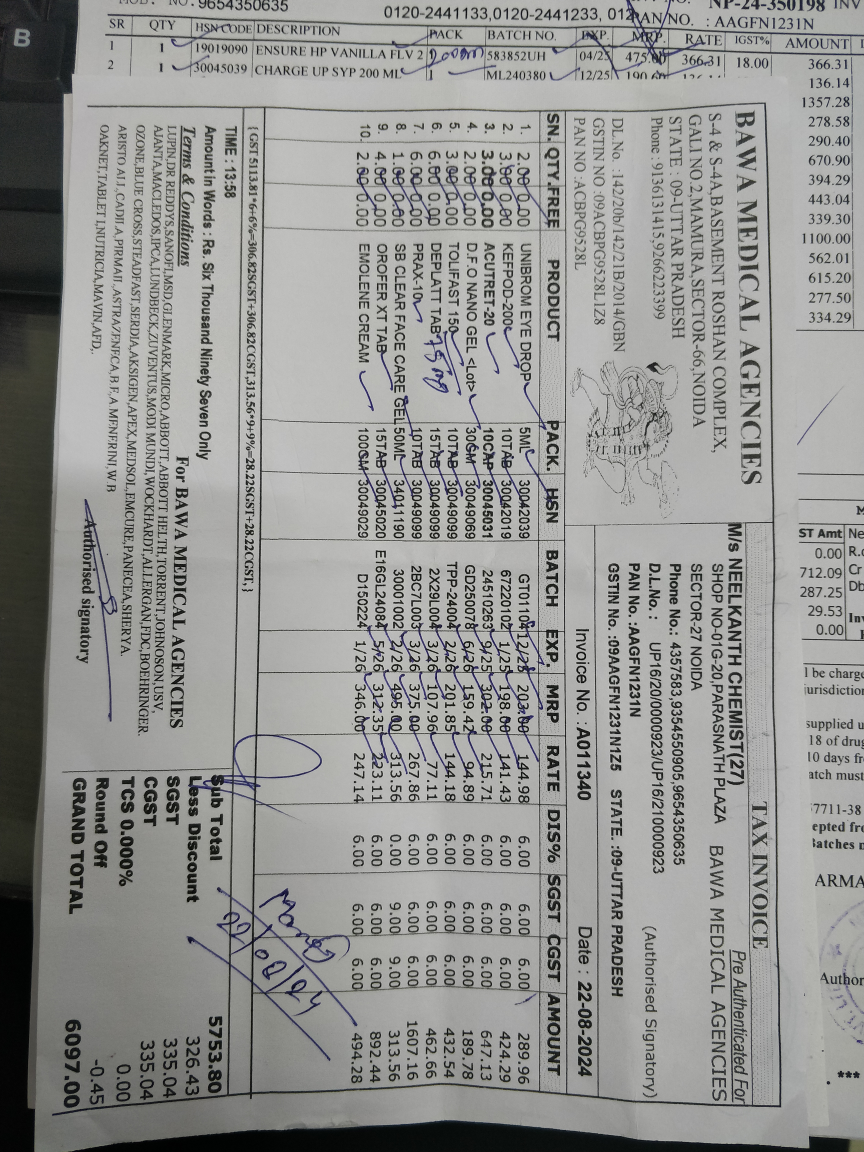 MOB. NO.9654350635
0120-2441133,0120-2441233, 012
NP-24-350198 INV
PAN NO. : AAGFN1231N
SR QTY HSN CODE DESCRIPTION PACK BATCH NO. EXP. MRP. RATE IGST% AMOUNT
1 1 19019090 ENSURE HP VANILLA FLV 2 200gm 583852UH 04/25 475.00 366.31 18.00 366.31
2 1 30045039 CHARGE UP SYP 200 ML 1 ML240380 12/25 190.60 136.14
1357.28
278.58
290.40
670.90
394.29
443.04
339.30
1100.00
562.01
615.20
277.50
334.29
BAWA MEDICAL AGENCIES
S-4 & S-4A,BASEMENT ROSHAN COMPLEX,
GALI NO 2,MAMURA,SECTOR-66,NOIDA
STATE : 09-UTTAR PRADESH
Phone : 9136131415,9266223399
DL.No. :142/20b/142/21B/2014/GBN
GSTIN NO :09ACBPG9528L1Z8
PAN NO :ACBPG9528L
TAX INVOICE
Pre Authenticated For
M/s NEELKANTH CHEMIST(27)
SHOP NO-01G-20,PARASNATH PLAZA
BAWA MEDICAL AGENCIES
SECTOR-27 NOIDA
Phone No.: 4357583,9354550905,9654350635
D.L.No. : UP16/20/0000923/UP16/210000923
(Authorised Signatory)
PAN No. :AAGFN1231N
GSTIN No. :09AAGFN1231N1Z5 STATE. :09-UTTAR PRADESH
Invoice No. :A011340 Date : 22-08-2024
SN. QTY.FREE PRODUCT PACK. HSN BATCH EXP. MRP RATE DIS% SGST CGST AMOUNT
1. 2.00 0.00 UNIBROM EYE DROP 5ML 30042039 GT01104 12/25 203.00 144.98 6.00 6.00 6.00 289.96
2. 3.00 0.00 KEFPOD-200 10TAB 30042019 67220102 1/25 198.00 141.43 6.00 6.00 6.00 424.29
3. 3.00 0.00 ACUTRET-20 10CAP 30045031 24510263 9/25 302.00 215.71 6.00 6.00 6.00 647.13
4. 2.00 0.00 D.F.O NANO GEL <Lot> 30GM 30049069 GD250078 6/26 159.42 94.89 6.00 6.00 6.00 189.78
5. 3.00 0.00 TOLIFAST 150 10TAB 30049099 TPP-24004 2/26 201.85 144.18 6.00 6.00 6.00 432.54
6. 6.00 0.00 DEPLATT TAB 75mg 15TAB 30049099 2X29L004 3/26 107.96 77.11 6.00 6.00 6.00 462.66
7. 6.00 0.00 PRAX-10 10TAB 30049099 2BC7L003 3/26 375.00 267.86 6.00 6.00 6.00 1607.16
8. 1.00 0.00 SB CLEAR FACE CARE GEL 50ML 34011190 30001002 2/26 495.00 313.56 0.00 9.00 9.00 313.56
9. 4.00 0.00 OROFER XT TAB 15TAB 30045020 E16GL24084 5/26 312.35 223.11 6.00 6.00 6.00 892.44
10. 2.00 0.00 EMOLENE CREAM 100GM 30049029 D150224 1/26 346.00 247.14 6.00 6.00 6.00 494.28
22/08/24
{ GST 5113.81*6+6%=306.82SGST+306.82CGST,313.56*9+9%=28.22SGST+28.22CGST, }
TIME : 13:58
Amount in Words : Rs. Six Thousand Ninety Seven Only
Terms & Conditions
For BAWA MEDICAL AGENCIES
LUPIN,DR REDDYS,SANOFI,MSD,GLENMARK,MICRO,ABBOTT,ABBOTT HELTH,TORRENT,JOHNOSON,USV,
AJANTA,MACLEDOS,IPCA,LUNDBECK,ZUVENTUS,MODI MUNDI,WOCKHARDT,ALLERGAN,FDC,BOEHRINGER
OZONE,BLUE CROSS,STEADFAST,SERDIA,AKSIGEN,APEX,MEDSOL,EMCURE,PANECEA,SHERYA,
ARISTO ALL,CADILA,PIRMAIL,ASTRAZENECA,B.E,A.MENERINI,W.B
OAKNET,TABLET I,NUTRICIA,MAVIN,AFD,.
Authorised signatory
Sub Total 5753.80
Less Discount 326.43
SGST 335.04
CGST 335.04
TCS 0.000% 0.00
Round Off -0.45
GRAND TOTAL 6097.00
ST Amt
0.00
712.09
287.25
29.53
0.00
Cr
l be charge
jurisdiction
supplied u
18 of drug
10 days fr
atch must
7711-38
epted fro
Batches n
ARMA
Author
***
B